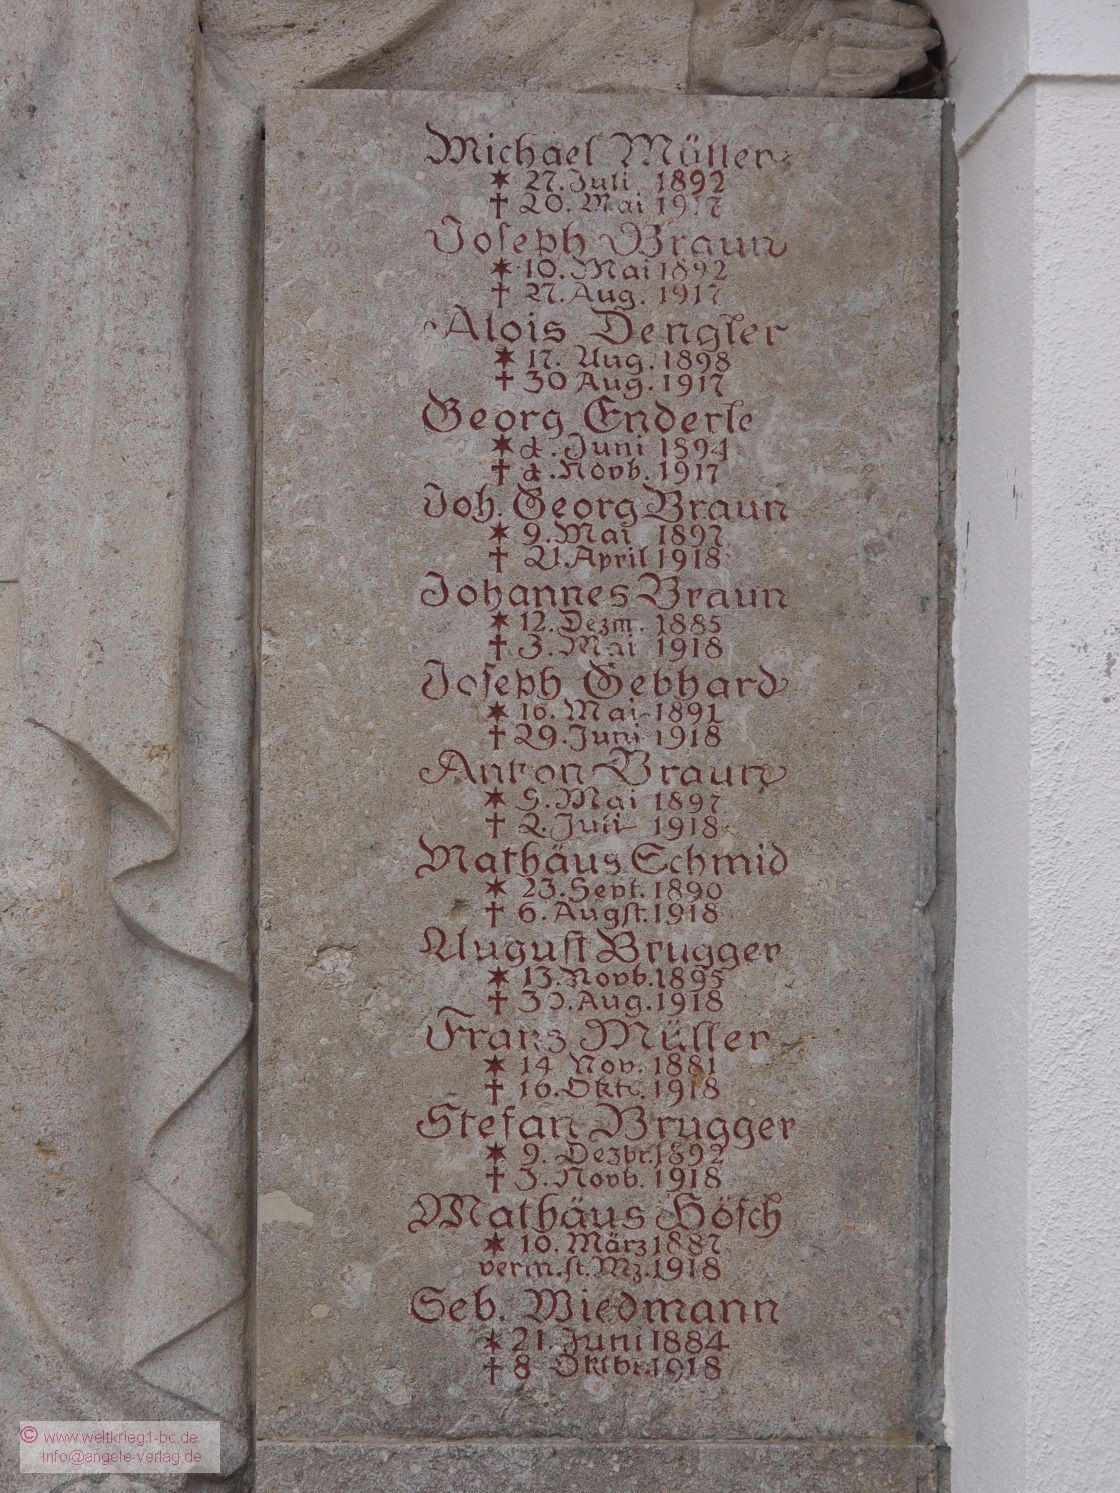 Michael Müller
✶ 27. Juli. 1892
† 20. Mai 1917
Joseph Braun
✶ 10. Mai 1892
† 27. Aug. 1917
Alois Dengler
✶ 17. Aug. 1898
† 30 Aug. 1917
Georg Enderle
✶ Juni 1894
† Novb. 1917
Joh. Georg Braun
✶ 9. Mai 1897
† 21. April 1918
Johannes Braun
✶ 12. Dezm. 1885
† 3. Mai 1918
Joseph Gebhard
✶ 16. Mai 1891
† 29. Juni 1918
Anton Braun
✶ Mai 1897
† 2. Juli 1918
Mathäus Schmid
✶ 23. Sept. 1890
† 6. Augst. 1918
August Brugger
✶ 13. Novb. 1895
† 30. Aug. 1918
Franz Müller
✶ 14 Nov. 1881
† 16. Okt. 1918
Stefan Brugger
✶ 9. Dezbr. 1892
† 3. Novb. 1918
Mathäus Hösch
✶ 10. März 1887
verm. st. Mz. 1918
Seb. Wiedmann
✶ 21. Juni 1884
† 8 Oktbr. 1918
© www.weltkrieg1-bc.de
info@angele-verlag.de